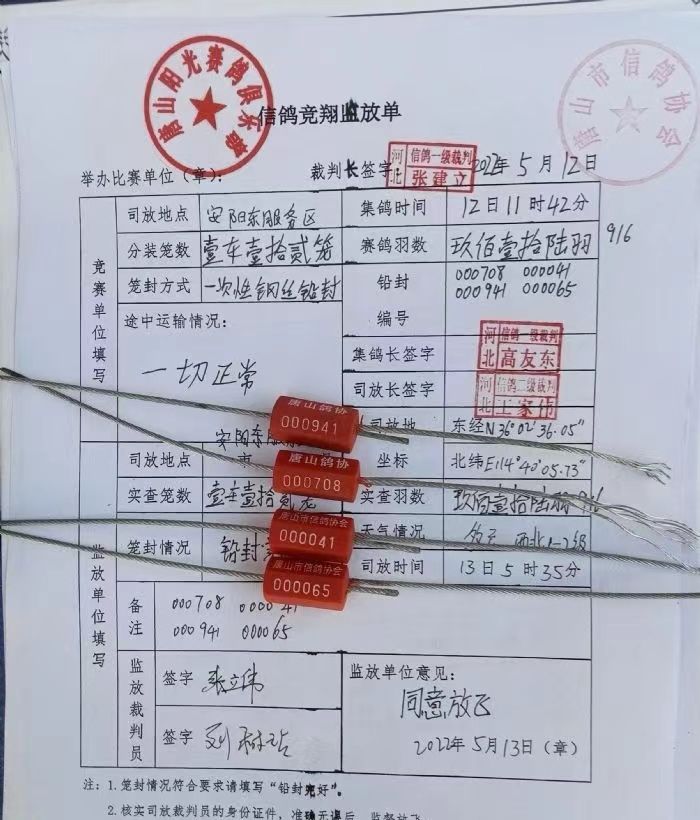 唐山阳光赛鸽俱乐部
唐山市信鸽协会
信鸽竞翔监放单
举办比赛单位（章）：
裁判长签字
河北 信鸽一级裁判 张建立
2022年5月12日
竞赛单位填写
司放地点 安阳东服务区
集鸽时间 12日11时42分
分装笼数 壹车壹拾贰笼
赛鸽羽数 玖佰壹拾陆羽 916
笼封方式 一次性钢丝铅封
铅封编号 000708 000041
000941 000065
途中运输情况：
一切正常
集鸽长签字 河北 信鸽一级裁判 高友东
司放长签字 河北 信鸽二级裁判 王家伟
司放地 东经N36°02′36.05″
坐标 北纬E:114°40′05.73″
唐山鸽协
000941
唐山鸽协
000708
唐山市信鸽协会
000041
唐山市信鸽协会
000065
监放单位填写
司放地点 安阳东
实查笼数 壹车壹拾贰笼
实查羽数 玖佰壹拾陆羽 916
笼封情况 铅封
天气情况 西北1-2级
司放时间 13日5时35分
备注 000708 000041
000941 000065
监放裁判员
签字 张立伟
签字
监放单位意见：
同意放飞
2022年5月13日（章）
注：1.笼封情况符合要求请填写“铅封完好”。
2.核实司放裁判员的身份证件，准确无误后，监督放飞